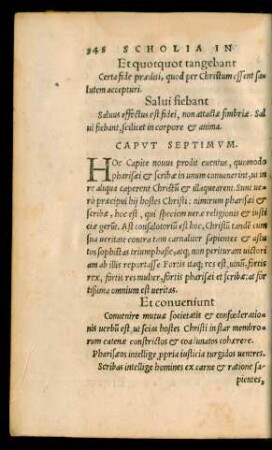 248 SCHOLIA IN
Et quotquot tangebant
Certa fide præditi, quod per Christum essent sa
lutem accepturi.
Salui fiebant
Saluus effectus est fidei, non attactæ fimbriæ. Sal
ui fiebant, scilicet in corpore & anima.
CAPVT SEPTIMVM.
HOc Capite nouus prodit euentus, quomodo
pharisæi & scribæ in unum conuenerint, ut in
re aliqua caperent Christũ & illaquearent. Sunt ue-
rò præcipui hij hostes Christi: nimirum pharisæi &
scribæ, hoc est, qui speciem ueræ religionis & iusti
ciæ gerũt. Ast consolatoriũ est hoc, Christũ tandẽ cum
sua ueritate contra tam canaliter sapientes & astu
tos sophistas triumphasse, atq; non perituram uictori
am ab illis reportasse. Fortis itaq; res est, uinũ, fortis
rex, fortis res mulier, fortis pharisæi et scribæ: at for
tissima omnium est ueritas.
Et conueniunt
Conuenire mutuæ societatis & confœderatio-
nis uerbũ est, ut scias hostes Christi instar membro-
rum catenæ constrictos & coadunatos cohærere.
Pharisæos intellige, ppria iusticia turgidos uenres.
Scribas intellige homines ex carne & ratione sa-
pientes,